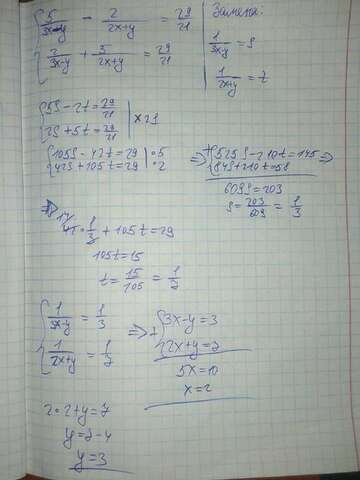 5/(3x-y) - 2/(2x+y) = 29/21
2/(3x-y) + 5/(2x+y) = 29/21
Замена.
1/(3x-y) = s
1/(2x+y) = t
{5s-2t = 29/21 | x21
{2s+5t = 29/21
{105s-42t=29 |·5
{42s+105t=29 |·2
=> +{525s-210t=145 =>
{84s+210t=58
609s=203
s = 203/609 = 1/3
42·1/3 + 105t=29
105t=15
t = 15/105 = 1/7
{1/(3x-y) = 1/3
{1/(2x+y) = 1/7
=> +{3x-y=3
{2x+y=7
5x=10
x=2
2·2+y=7
y=7-4
y=3